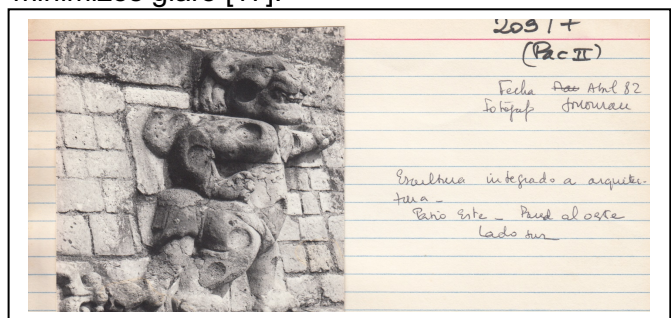 minimizes glare [17].
2091 +
(Pac II)
Fecha Abril 82
Fotógraf
Escultura integrado a arquitec-
tura -
Patio Este - Pared al oeste
Lado sur